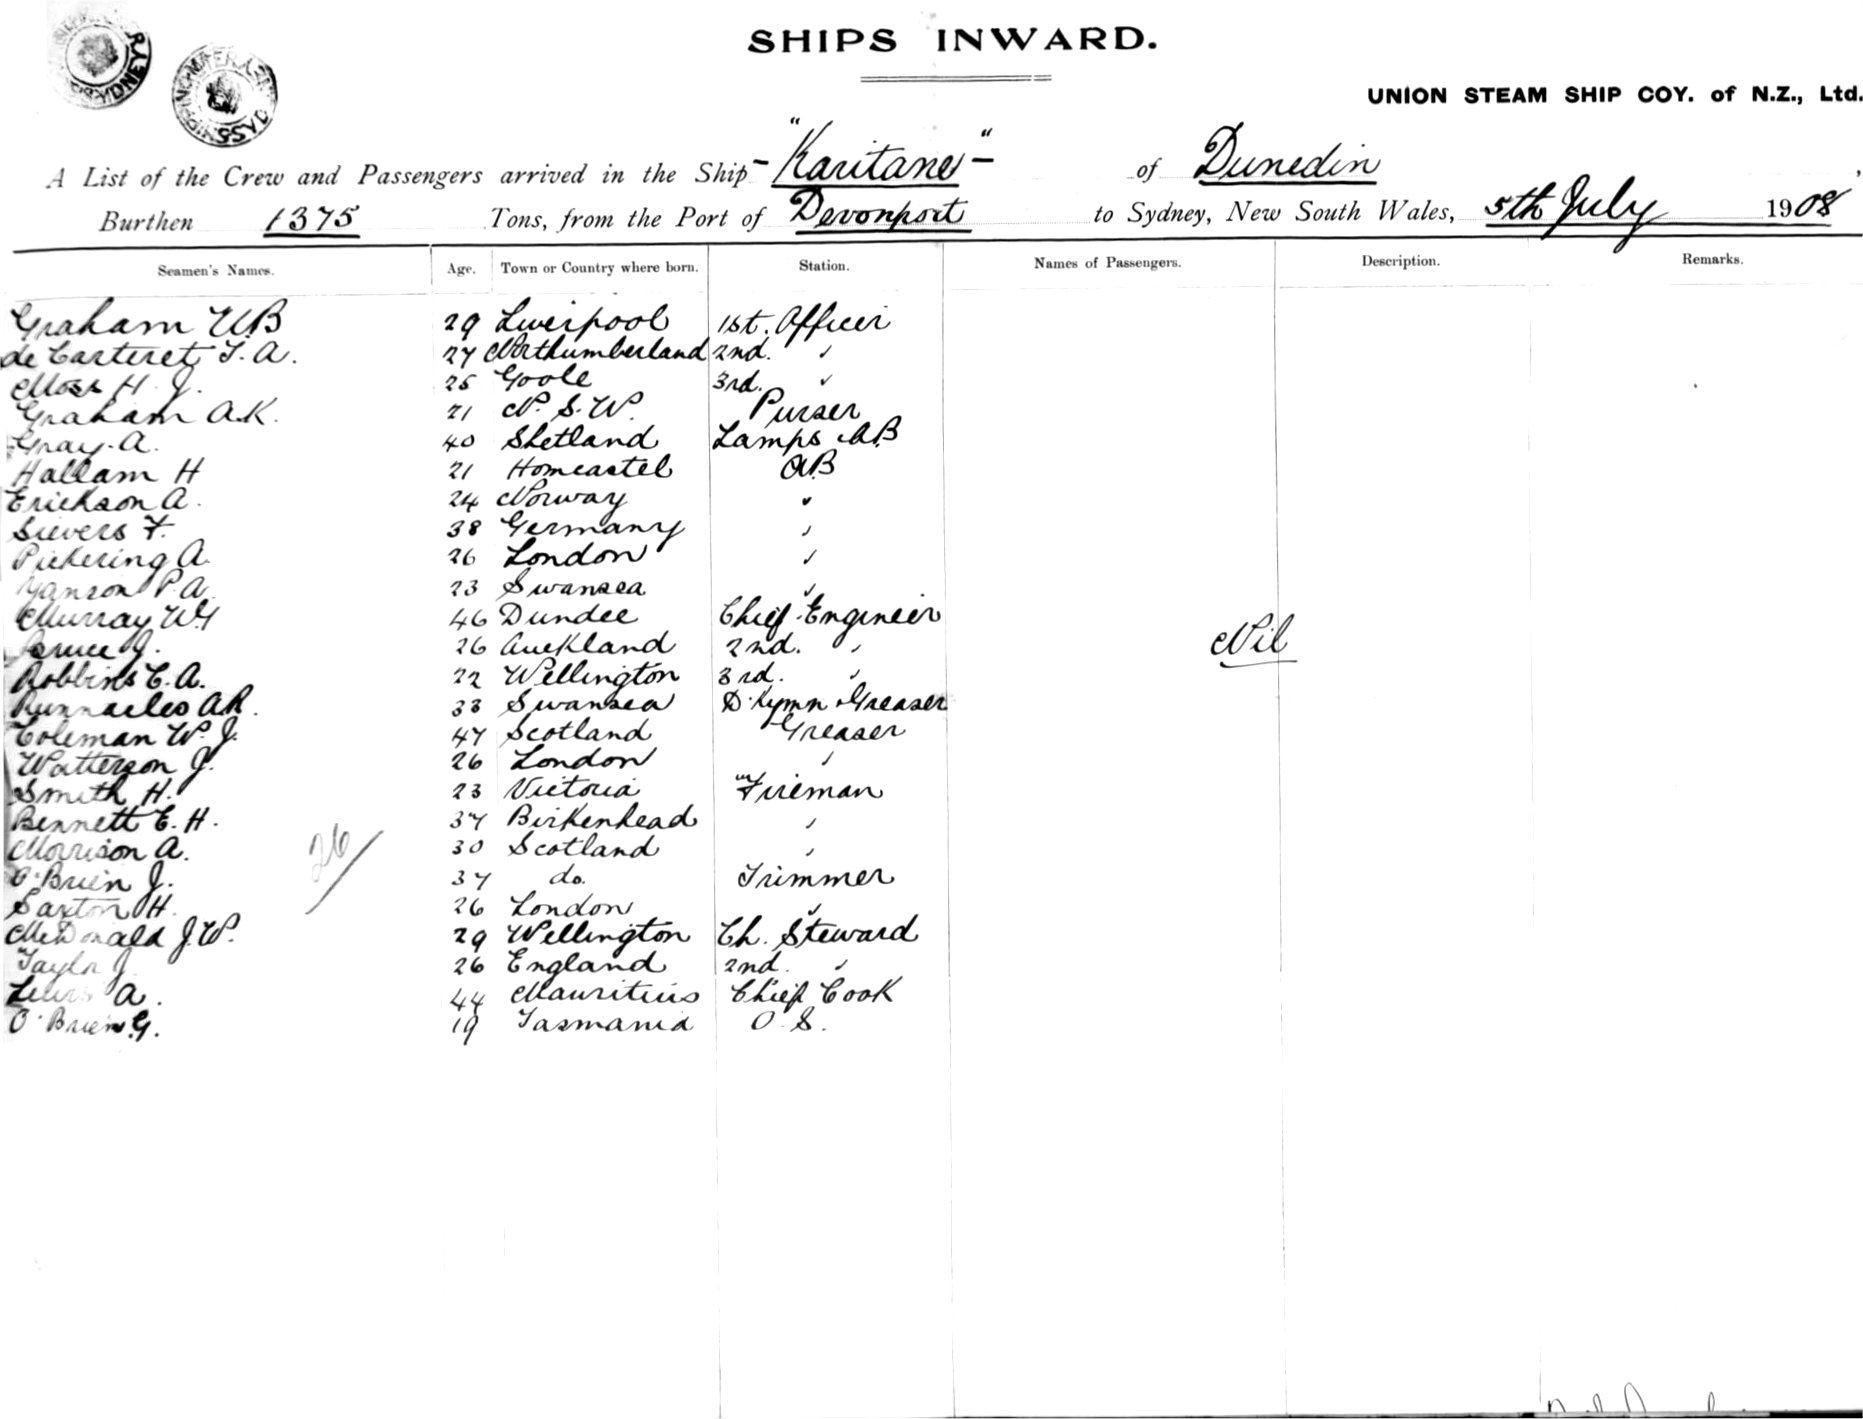 SHIPS INWARD.
UNION STEAM SHIP COY. of N.Z., Ltd.
A List of the Crew and Passengers arrived in the Ship - "Karitane" - of Dunedin,
Burthen 1375 Tons, from the Port of Devonport to Sydney, New South Wales, 5th July 1908
Seamen's Names. Age. Town or Country where born. Station. Names of Passengers. Description. Remarks.
Graham W.B 29 Liverpool 1st. Officer
de Carteret T. A. 27 Northumberland 2nd. "
Moss H. J. 25 Goole 3rd. "
Graham A.K. 21 N. S. W. Purser
Gray A. 40 Shetland Lamps A.B
Hallam H 21 Horncastel A.B
Erickson A. 24 Norway "
Sievers F. 38 Germany "
Pickering A. 26 London "
Yanson P. A. 23 Swansea "
Murray W. 46 Dundee Chief Engineer
Bruce J. 26 Auckland 2nd. "
Nil
Robbins C. A. 22 Wellington 3rd. "
Runnacles A.R. 33 Swansea D. Kymn Greaser
Coleman W. J. 47 Scotland Greaser
Watterson J. 26 London "
Smith H. 23 Victoria Fireman
Bennett E. H. 37 Birkenhead "
Morrison A. 30 Scotland "
26/
O'Brien J. 37 do. Trimmer
Saxton H. 26 London "
McDonald J.W. 29 Wellington Ch. Steward
Taylor J. 26 England 2nd. "
Lewis A. 44 Mauritius Chief Cook
O'Brien G. 19 Tasmania O. S.